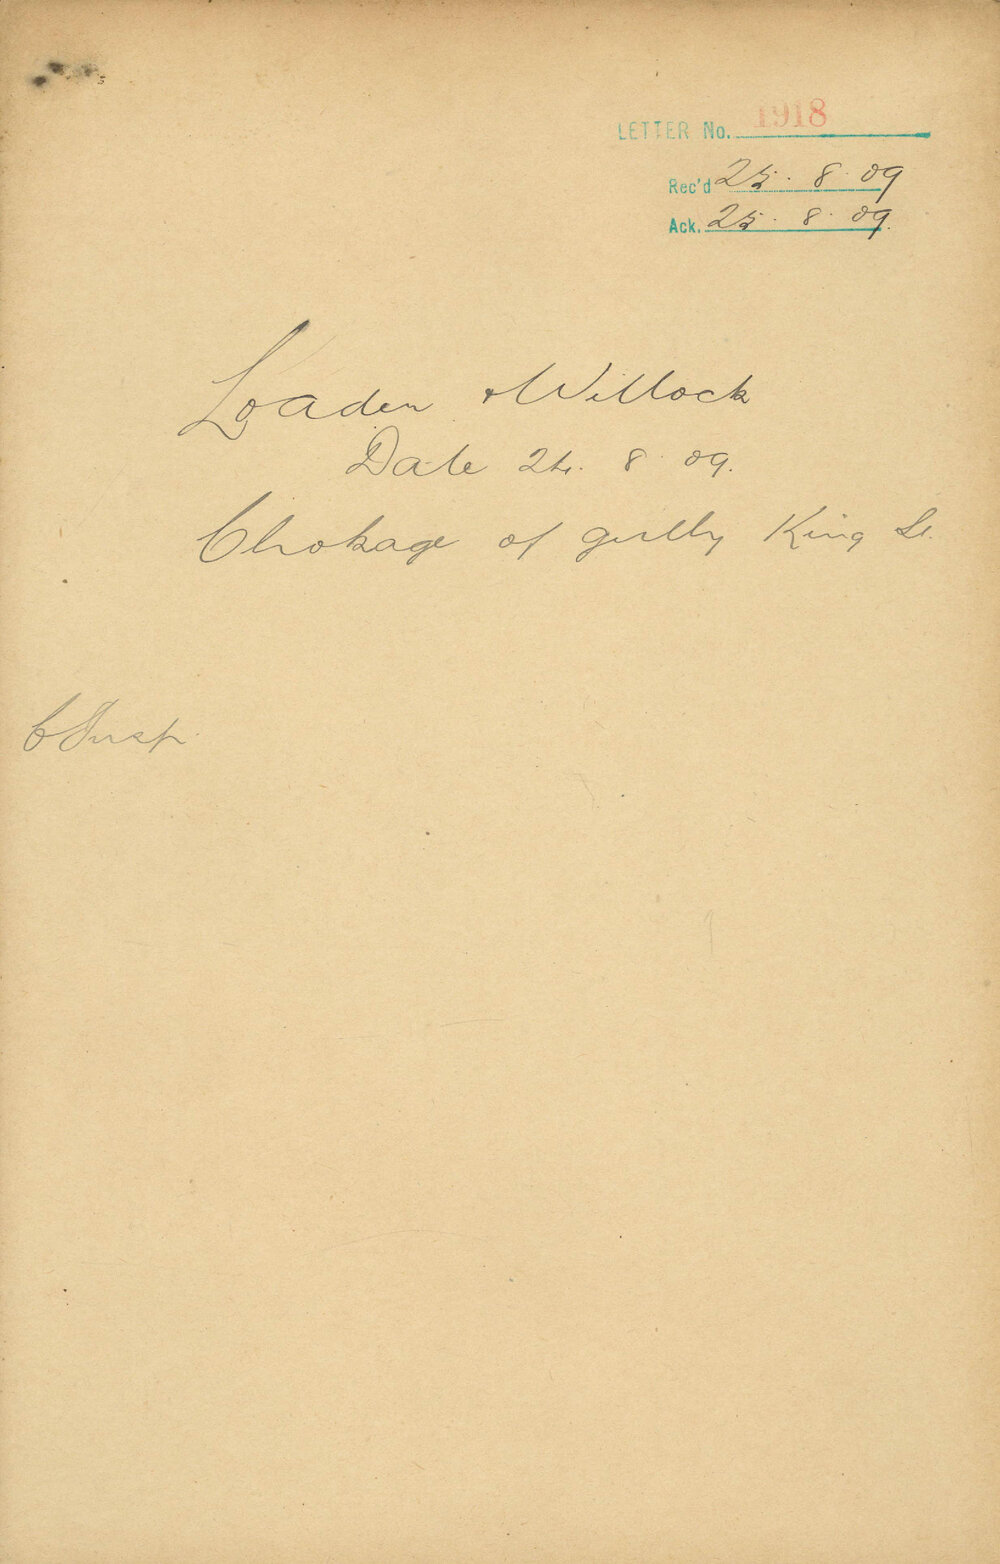 LETTER No. 1918
Rec'd 25. 8. 09
Ack. 25. 8. 09.
Loaden & Willock
Date 24. 8. 09.
Chokage of gully King St.
C Insp.